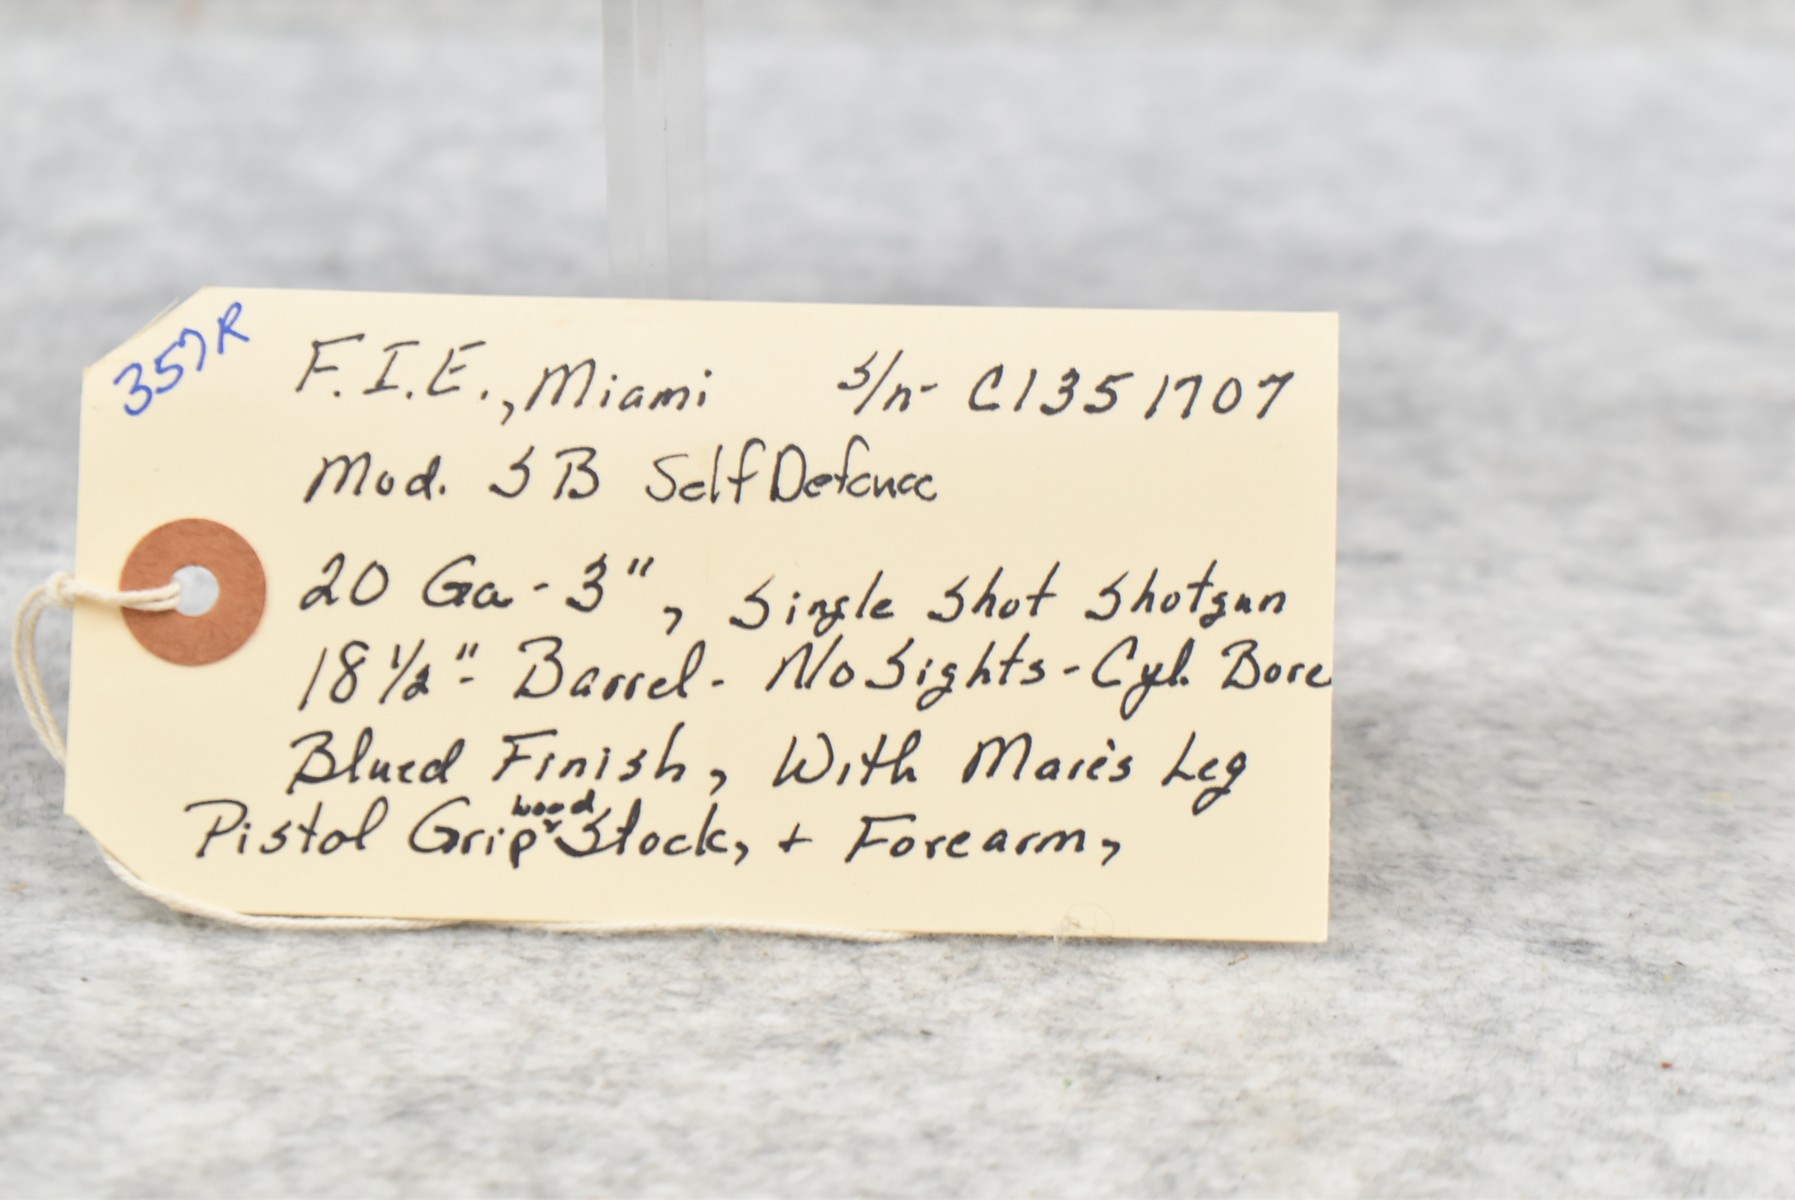 357R
F.I.E., Miami s/n- C1351707
Mod. SB Self Defence
20 Ga - 3", Single Shot Shotgun
18 1/2"- Barrel - No Sights - Cyl. Bore
Blued Finish, With Mare's Leg
Pistol Grip wood Stock, + Forearm,